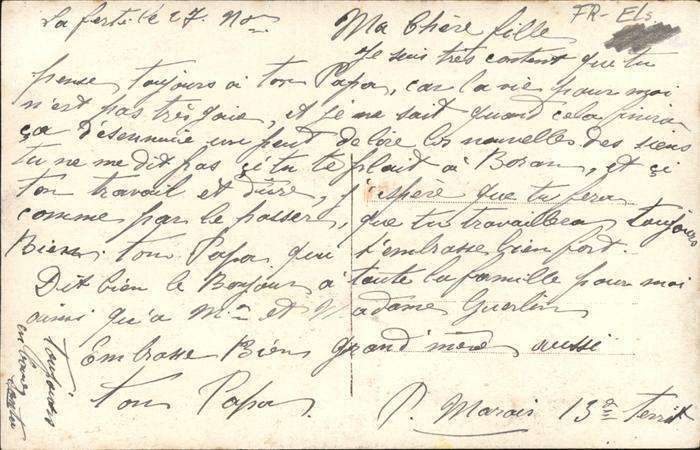 La ferté le 27. Nov
FR-Els
Ma Chère fille
Je suis très content que tu
pense toujours à ton Papa, car la vie pour moi
n'est pas très gaie, et je ne sait quand cela finira
ça désennuie un peut de lire les nouvelles des siens
tu ne me dit pas çi tu te plait à Boran, et çi
ton travail et dure, j'espère que tu fera
comme par le passer, que tu travaillera toujours
Bien. ton Papa qui t'embrasse bien fort.
Dit bien le Bonjour à toute la famille pour moi
ainsi qu'a Mr et Madame Guerlin
Embrasse Bien grand'mère aussi
ton Papa.
P. Marais 13e Territ
toujours
en bonne
santé